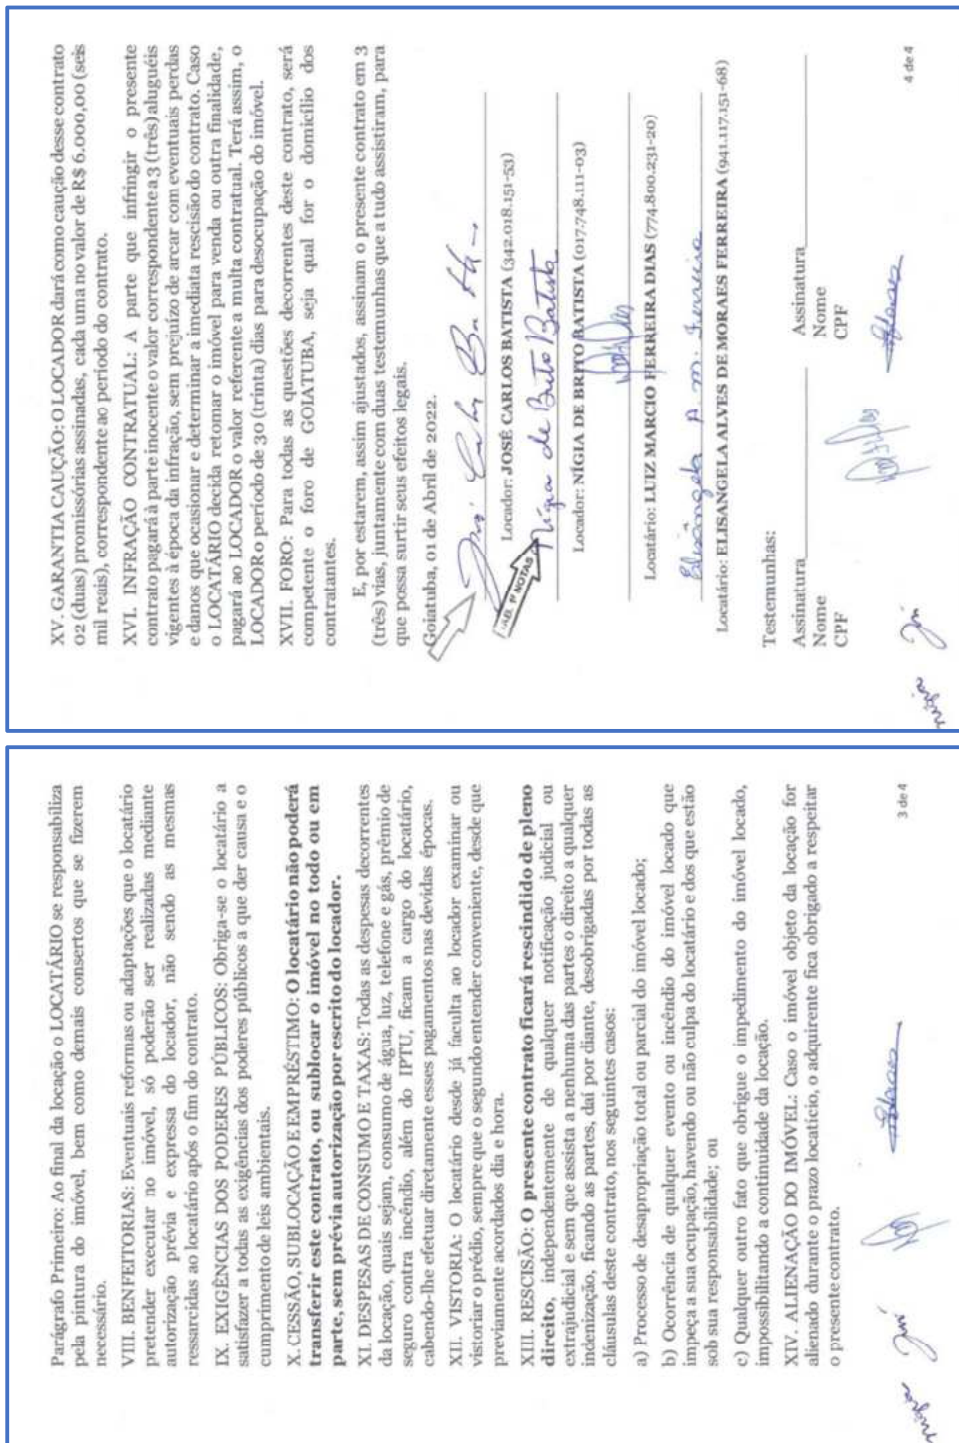 Parágrafo Primeiro: Ao final da locação o LOCATÁRIO se responsabiliza
pela pintura do imóvel, bem como demais consertos que se fizerem
necessário.
VIII. BENFEITORIAS: Eventuais reformas ou adaptações que o locatário
pretender executar no imóvel, só poderão ser realizadas mediante
autorização prévia e expressa do locador, não sendo as mesmas
ressarcidas ao locatário após o fim do contrato.
IX. EXIGÊNCIAS DOS PODERES PÚBLICOS: Obriga-se o locatário a
satisfazer a todas as exigências dos poderes públicos a que der causa e o
cumprimento de leis ambientais.
X. CESSÃO, SUBLOCAÇÃO E EMPRÉSTIMO: O locatário não poderá
transferir este contrato, ou sublocar o imóvel no todo ou em
parte, sem prévia autorização por escrito do locador.
XI. DESPESAS DE CONSUMO E TAXAS: Todas as despesas decorrentes
da locação, quais sejam, consumo de água, luz, telefone e gás, prêmio de
seguro contra incêndio, além do IPTU, ficam a cargo do locatário,
cabendo-lhe efetuar diretamente esses pagamentos nas devidas épocas.
XII. VISTORIA: O locatário desde já faculta ao locador examinar ou
vistoriar o prédio, sempre que o segundo entender conveniente, desde que
previamente acordados dia e hora.
XIII. RESCISÃO: O presente contrato ficará rescindido de pleno
direito, independentemente de qualquer notificação judicial ou
extrajudicial e sem que assista a nenhuma das partes o direito a qualquer
indenização, ficando as partes, daí por diante, desobrigadas por todas as
cláusulas deste contrato, nos seguintes casos:
a) Processo de desapropriação total ou parcial do imóvel locado;
b) Ocorrência de qualquer evento ou incêndio do imóvel locado que
impeça a sua ocupação, havendo ou não culpa do locatário e dos que estão
sob sua responsabilidade; ou
c) Qualquer outro fato que obrigue o impedimento do imóvel locado,
impossibilitando a continuidade da locação.
XIV. ALIENAÇÃO DO IMÓVEL: Caso o imóvel objeto da locação for
alienado durante o prazo locatício, o adquirente fica obrigado a respeitar
o presente contrato.
3 de 4
XV. GARANTIA CAUÇÃO: O LOCADOR dará como caução desse contrato
02 (duas) promissórias assinadas, cada uma no valor de R$ 6.000,00 (seis
mil reais), correspondente ao período do contrato.
XVI. INFRAÇÃO CONTRATUAL: A parte que infringir o presente
contrato pagará à parte inocente o valor correspondente a 3 (três) aluguéis
vigentes à época da infração, sem prejuízo de arcar com eventuais perdas
e danos que ocasionar e determinar a imediata rescisão do contrato. Caso
o LOCATÁRIO decida retomar o imóvel para venda ou outra finalidade,
pagará ao LOCADOR o valor referente a multa contratual. Terá assim, o
LOCADOR o período de 30 (trinta) dias para desocupação do imóvel.
XVII. FORO: Para todas as questões decorrentes deste contrato, será
competente o foro de GOIATUBA, seja qual for o domicílio dos
contratantes.
E, por estarem, assim ajustados, assinam o presente contrato em 3
(três) vias, juntamente com duas testemunhas que a tudo assistiram, para
que possa surtir seus efeitos legais.
Goiatuba, 01 de Abril de 2022.
Locador: JOSÉ CARLOS BATISTA (342.018.151-53)
TAB. 1º NOTAS
Nígia de Brito Batista
Locador: NÍGIA DE BRITO BATISTA (017.748.111-03)
Locatário: LUIZ MARCIO FERREIRA DIAS (774.800.231-20)
Elisângela A. M. Ferreira
Locatário: ELISANGELA ALVES DE MORAES FERREIRA (941.117.151-68)
Testemunhas:
Assinatura Assinatura
Nome Nome
CPF CPF
4 de 4